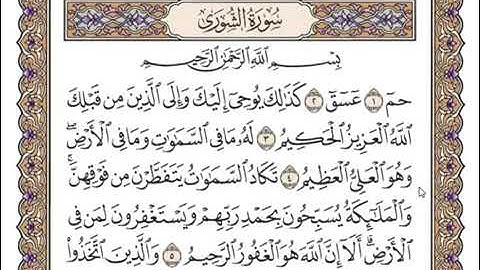 سُورَةُ الشُّورَىٰ
بِسْمِ اللَّهِ الرَّحْمَٰنِ الرَّحِيمِ
حمٓ ١ عٓسٓقٓ ٢ كَذَٰلِكَ يُوحِىٓ إِلَيْكَ وَإِلَى الَّذِينَ مِن قَبْلِكَ
اللَّهُ الْعَزِيزُ الْحَكِيمُ ٣ لَهُۥ مَا فِى السَّمَٰوَٰتِ وَمَا فِى الْأَرْضِ ۖ
وَهُوَ الْعَلِىُّ الْعَظِيمُ ٤ تَكَادُ السَّمَٰوَٰتُ يَتَفَطَّرْنَ مِن فَوْقِهِنَّ ۚ
وَالْمَلَٰٓئِكَةُ يُسَبِّحُونَ بِحَمْدِ رَبِّهِمْ وَيَسْتَغْفِرُونَ لِمَن فِى
الْأَرْضِ ۗ أَلَآ إِنَّ اللَّهَ هُوَ الْغَفُورُ الرَّحِيمُ ٥ وَالَّذِينَ اتَّخَذُوا